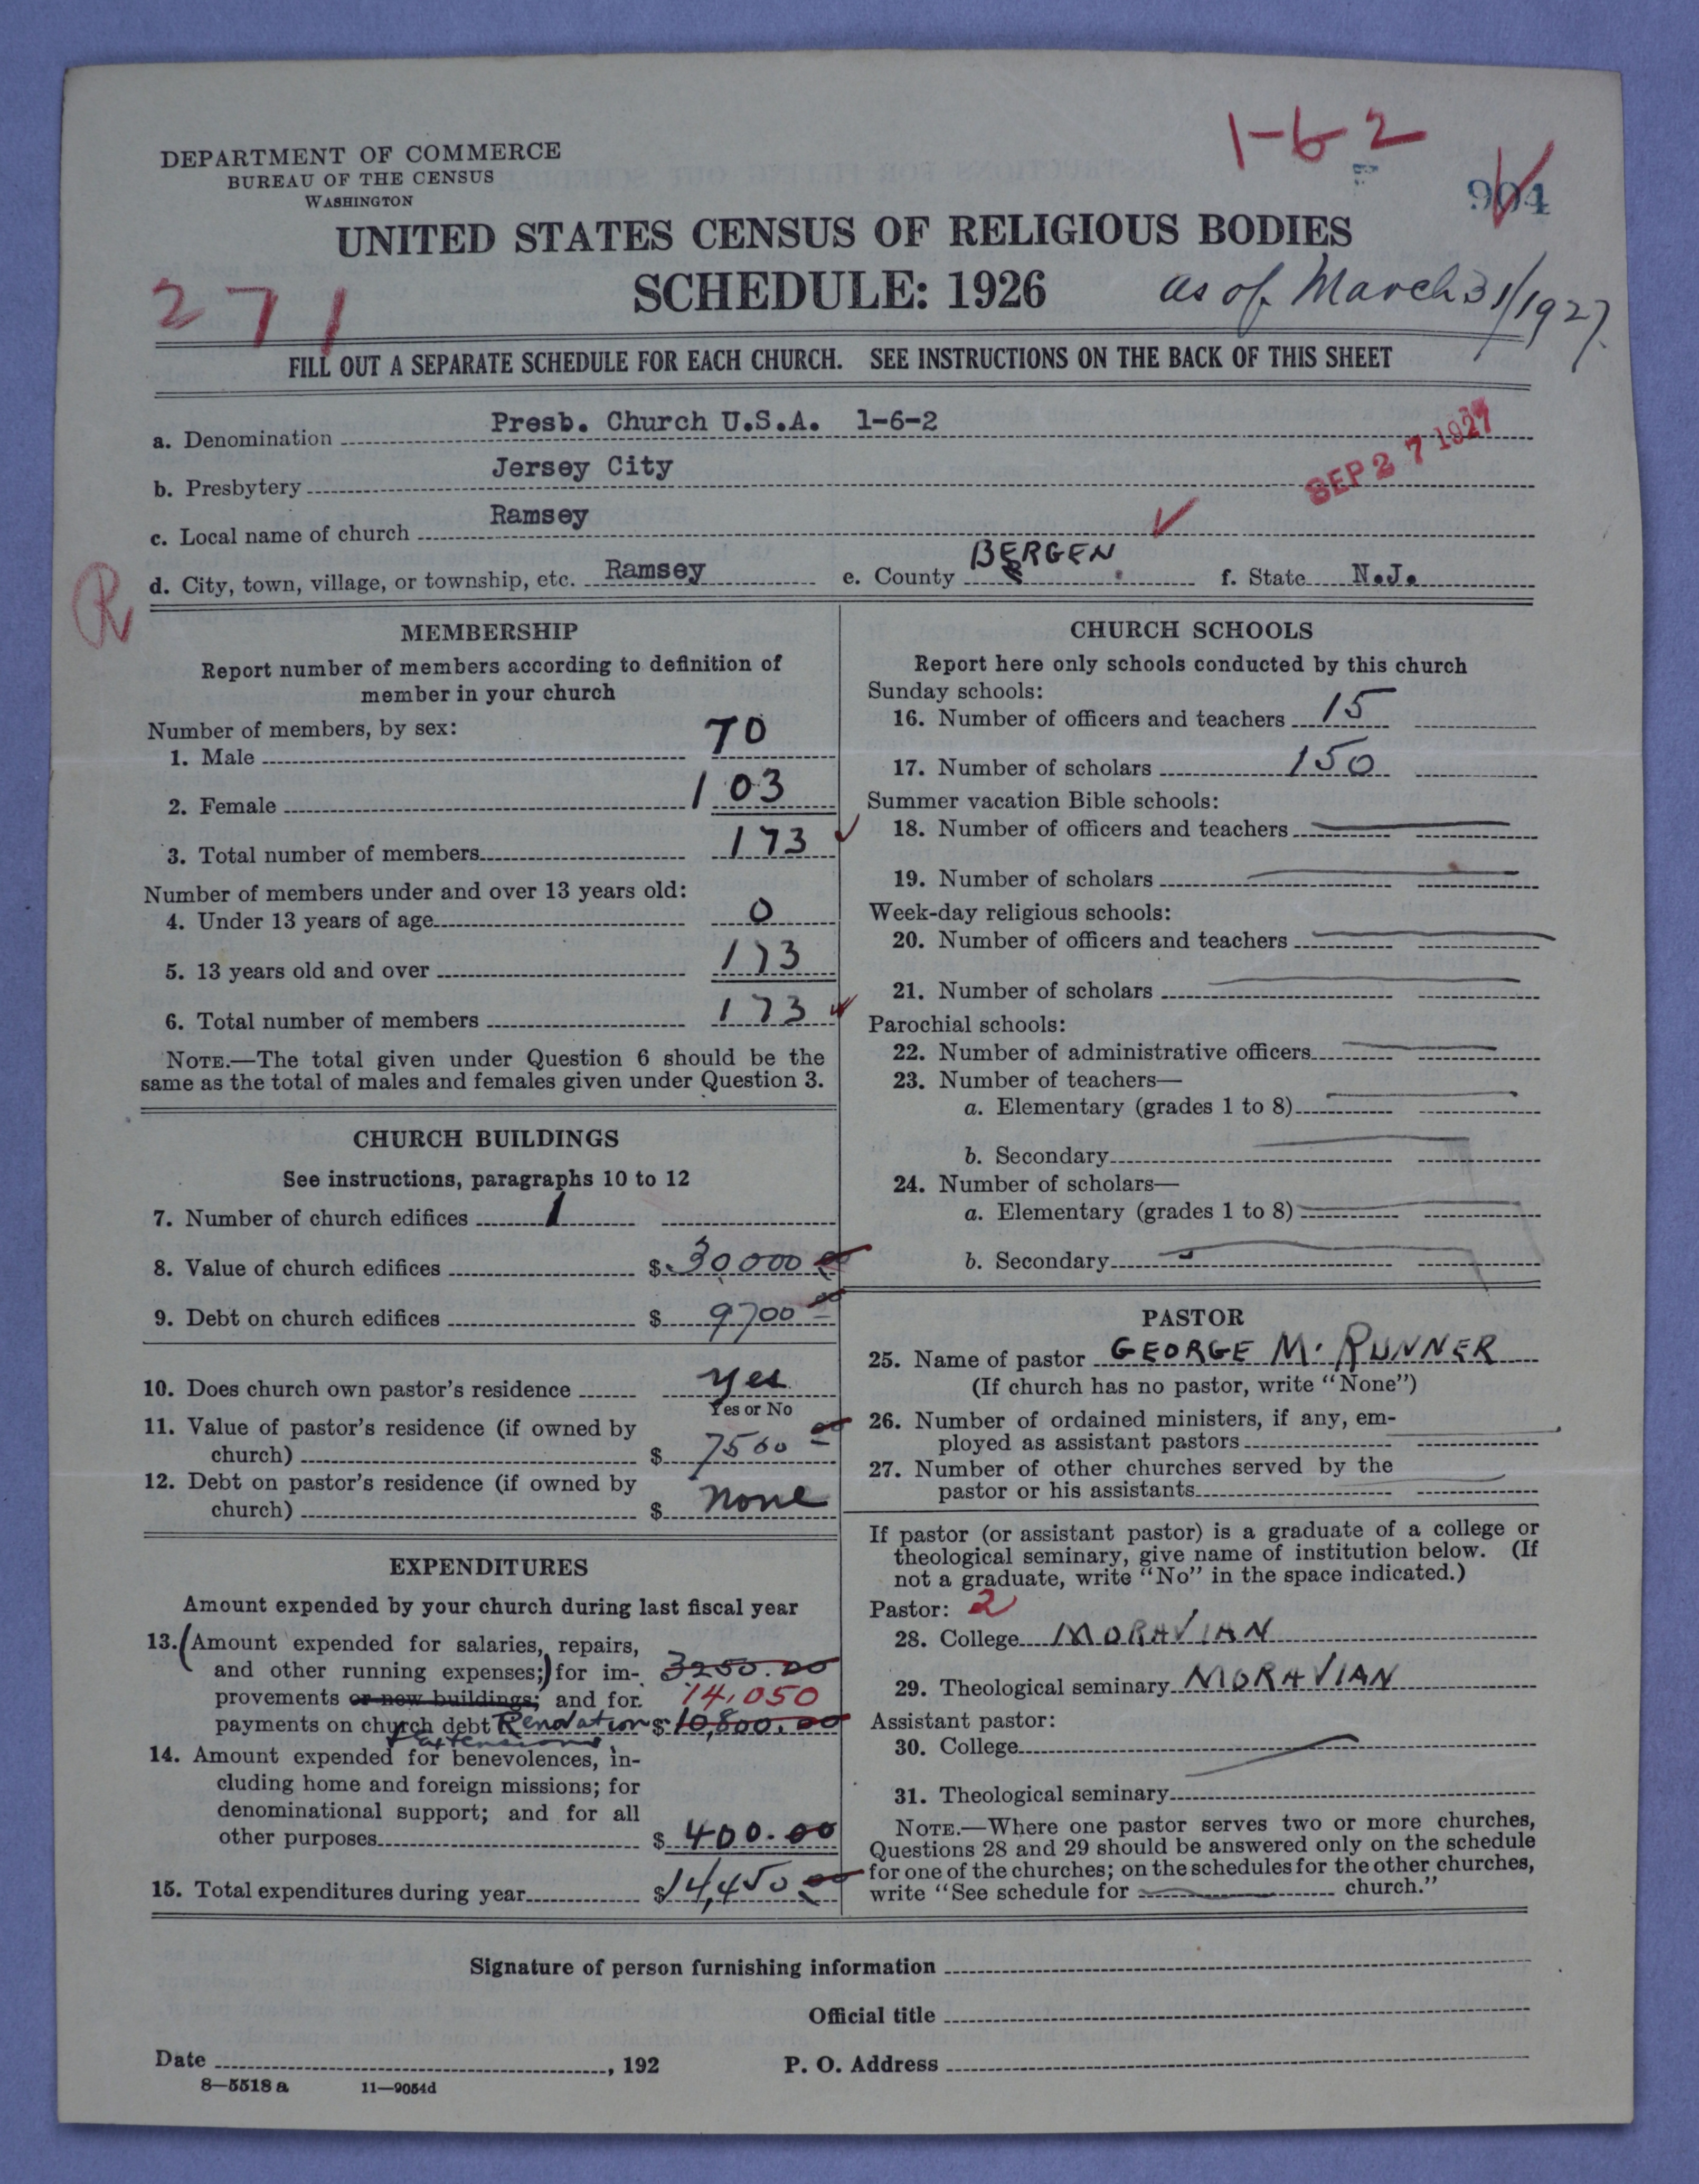 1-6-2
DEPARTMENT OF COMMERCE
BUREAU OF THE CENSUS
WASHINGTON
904
UNITED STATES CENSUS OF RELIGIOUS BODIES
SCHEDULE: 1926 as of March 31/1927.
271
FILL OUT A SEPARATE SCHEDULE FOR EACH CHURCH. SEE INSTRUCTIONS ON THE BACK OF THIS SHEET
a. Denomination Presb. Church U.S.A. 1-6-2
SEP 27 1927
b. Presbytery Jersey City
c. Local name of church Ramsey
R
d. City, town, village, or township, etc. Ramsey e. County BERGEN f. State N.J.
MEMBERSHIP
Report number of members according to definition of
member in your church
Number of members, by sex:
1. Male 70
2. Female 103
3. Total number of members 173
Number of members under and over 13 years old:
4. Under 13 years of age 0
5. 13 years old and over 173
6. Total number of members 173
NOTE.—The total given under Question 6 should be the
same as the total of males and females given under Question 3.
CHURCH BUILDINGS
See instructions, paragraphs 10 to 12
7. Number of church edifices 1
8. Value of church edifices $ 30,000 00
9. Debt on church edifices $ 9700 00
10. Does church own pastor's residence yes
Yes or No
11. Value of pastor's residence (if owned by
church) $ 7500 00
12. Debt on pastor's residence (if owned by
church) $ none
EXPENDITURES
Amount expended by your church during last fiscal year
13. (Amount expended for salaries, repairs,
and other running expenses;) for im- 3250.00
provements or new buildings; and for 14,050
payments on church debt Renovation $ 10,800.00
+ extensions
14. Amount expended for benevolences, in-
cluding home and foreign missions; for
denominational support; and for all
other purposes $ 400.00
15. Total expenditures during year $ 14,450 00
CHURCH SCHOOLS
Report here only schools conducted by this church
Sunday schools:
16. Number of officers and teachers 15
17. Number of scholars 150
Summer vacation Bible schools:
18. Number of officers and teachers
19. Number of scholars
Week-day religious schools:
20. Number of officers and teachers
21. Number of scholars
Parochial schools:
22. Number of administrative officers
23. Number of teachers—
a. Elementary (grades 1 to 8)
b. Secondary
24. Number of scholars—
a. Elementary (grades 1 to 8)
b. Secondary
PASTOR
25. Name of pastor GEORGE M. RUNNER
(If church has no pastor, write "None")
26. Number of ordained ministers, if any, em-
ployed as assistant pastors
27. Number of other churches served by the
pastor or his assistants
If pastor (or assistant pastor) is a graduate of a college or
theological seminary, give name of institution below. (If
not a graduate, write "No" in the space indicated.)
Pastor: 2
28. College MORAVIAN
29. Theological seminary MORAVIAN
Assistant pastor:
30. College
31. Theological seminary
NOTE.—Where one pastor serves two or more churches,
Questions 28 and 29 should be answered only on the schedule
for one of the churches; on the schedules for the other churches,
write "See schedule for church."
Signature of person furnishing information
Official title
Date , 192 P. O. Address
8—5518 a 11—9054d